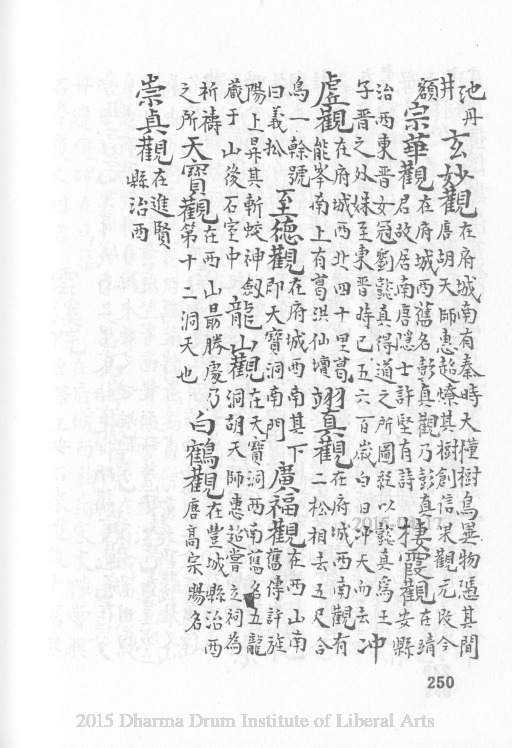 池丹井玄妙觀在府城南有秦時大橦樹鳥巢異物憑其間唐胡天師惠超燎其樹創信果觀元改今
額宗華觀在府城西舊名彭真觀乃彭真君故居南唐隱士許堅有詩棲霞觀在靖安縣
治西東晉女冠劉懿真得道之所圖經以懿真爲王子晉之外姝至東晉時已五六百歲白日冲天而去冲
虛觀在府城西北四十里葛能峯南上有葛洪仙壇翊真觀在府城西南觀有二松相去五尺合
爲一幹號曰義松至德觀在府城西南其下即天寶洞南門廣福觀在西山南舊傳許旌
陽上昇其斬蛟神劔藏于山後石室中龍山觀在天寶洞西南舊名五龍洞胡天師惠超嘗之祠為
祈禱之所天寶觀在西山最勝處乃第十二洞天也白鶴觀在豐城縣治西唐高宗賜名
崇真觀在進賢縣治西
250
2015 Dharma Drum Institute of Liberal Arts